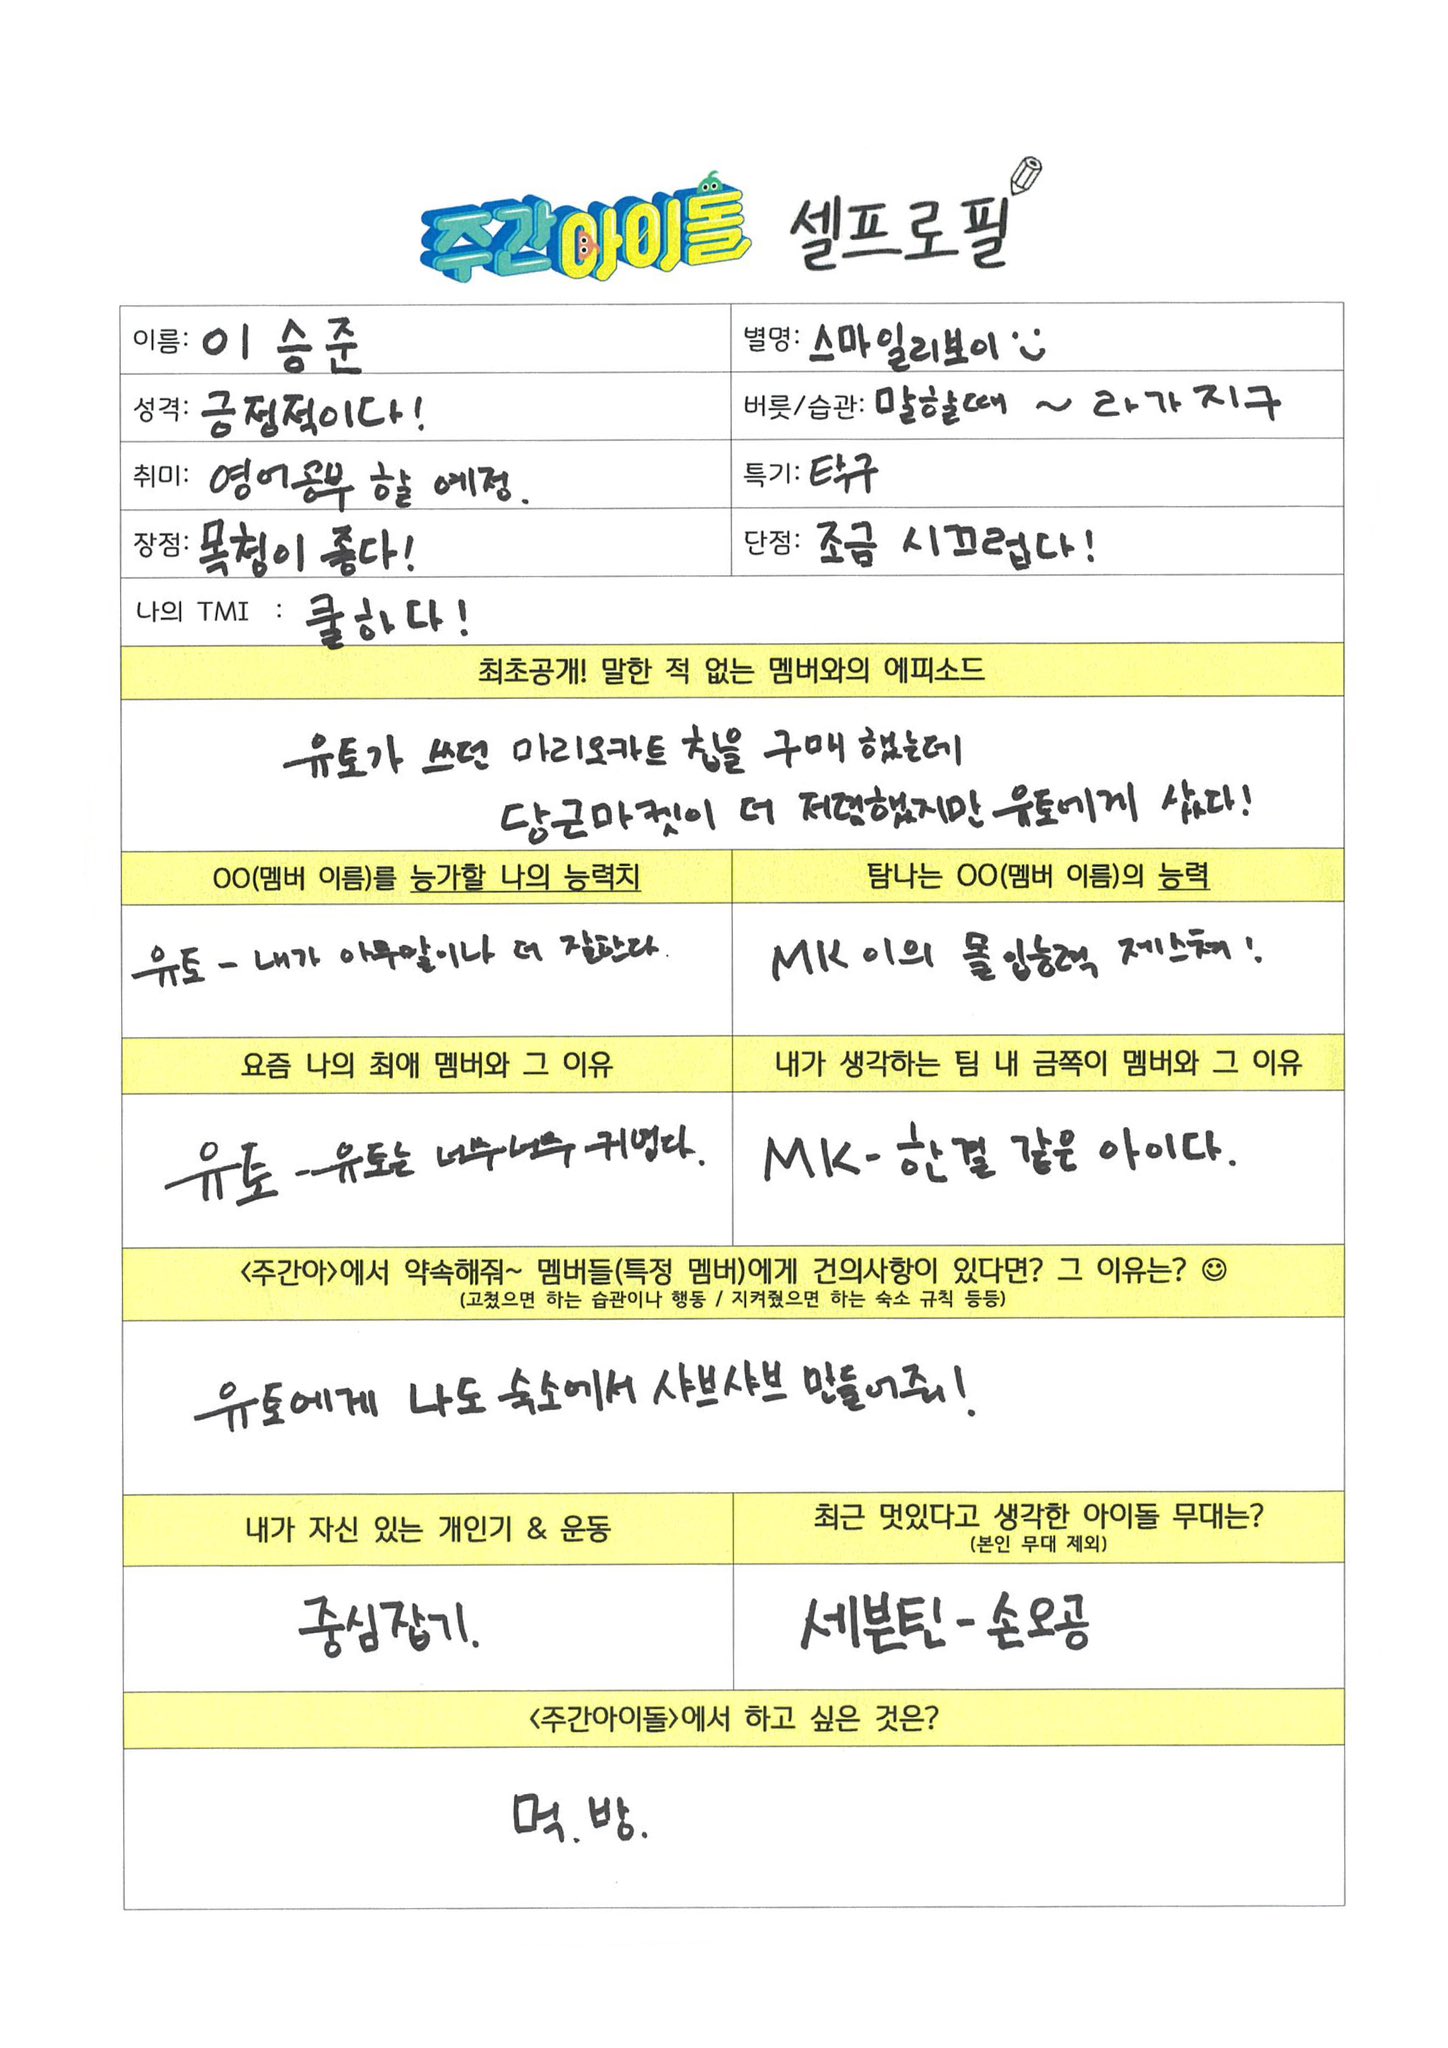 주간아이돌 셀프로필
이름: 이승준
별명: 스마일리보이
성격: 긍정적이다!
버릇/습관: 말할때 ~ 라가지구
취미: 영어공부 할 예정.
특기: 탁구
장점: 목청이 좋다!
단점: 조금 시끄럽다!
나의 TMI : 쿨하다!
최초공개! 말한 적 없는 멤버와의 에피소드
유토가 쓰던 마리오카트 칩을 구매 했는데
당근마켓이 더 저렴했지만 유토에게 샀다!
OO(멤버 이름)를 능가할 나의 능력치
탐나는 OO(멤버 이름)의 능력
유토 - 내가 아무말이나 더 잘한다.
MK이의 몰입능력 제스쳐!
요즘 나의 최애 멤버와 그 이유
내가 생각하는 팀 내 금쪽이 멤버와 그 이유
유토 - 유토는 너무너무 귀엽다.
MK - 한결 같은 아이다.
<주간아>에서 약속해줘~ 멤버들(특정 멤버)에게 건의사항이 있다면? 그 이유는? ☺
(고쳤으면 하는 습관이나 행동 / 지켜줬으면 하는 숙소 규칙 등등)
유토에게 나도 숙소에서 샤브샤브 만들어줘!
내가 자신 있는 개인기 & 운동
최근 멋있다고 생각한 아이돌 무대는?
(본인 무대 제외)
중심잡기.
세븐틴 - 손오공
<주간아이돌>에서 하고 싶은 것은?
먹.방.